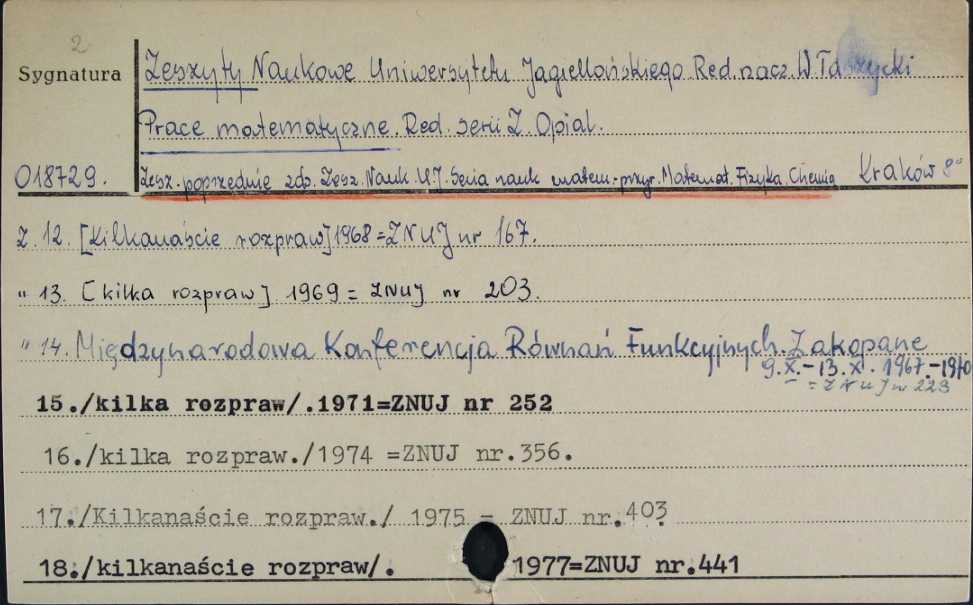 2
Sygnatura
Zeszyty Naukowe Uniwersytetu Jagiellońskiego Red. nacz. W Taszycki
Prace matematyczne. Red. serii Z. Opial.
018729.
Zesz. poprzednie zob. Zesz. Nauk. UJ. Seria nauk matem.-przyr. Matemat. Fizyka. Chemia Kraków 8°
Z. 12. [Kilkanaście rozpraw] 1968 = ZNUJ nr 167.
" 13. [kilka rozpraw] 1969 = ZNUJ nr 203.
" 14. Międzynarodowa Konferencja Równań Funkcyjnych. Zakopane
9.X.-13.X. 1967.-1970
= ZNUJ nr 223
15./kilka rozpraw/.1971=ZNUJ nr 252
16./kilka rozpraw./1974 =ZNUJ nr.356.
17./Kilkanaście rozpraw./ 1975 - ZNUJ nr.403.
18./kilkanaście rozpraw/. 1977=ZNUJ nr.441